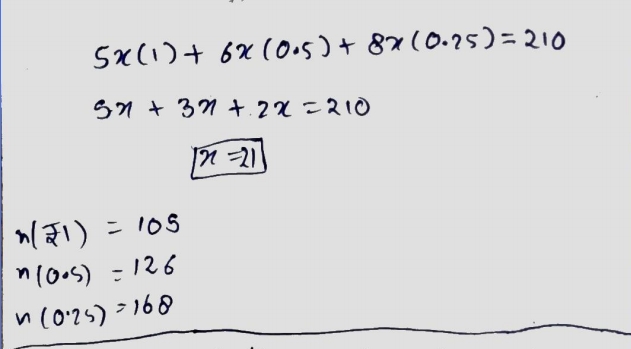 5x(1) + 6x(0.5) + 8x(0.25) = 210
5x + 3x + 2x = 210
x = 21
n(₹1) = 105
n(0.5) = 126
n(0.25) = 168